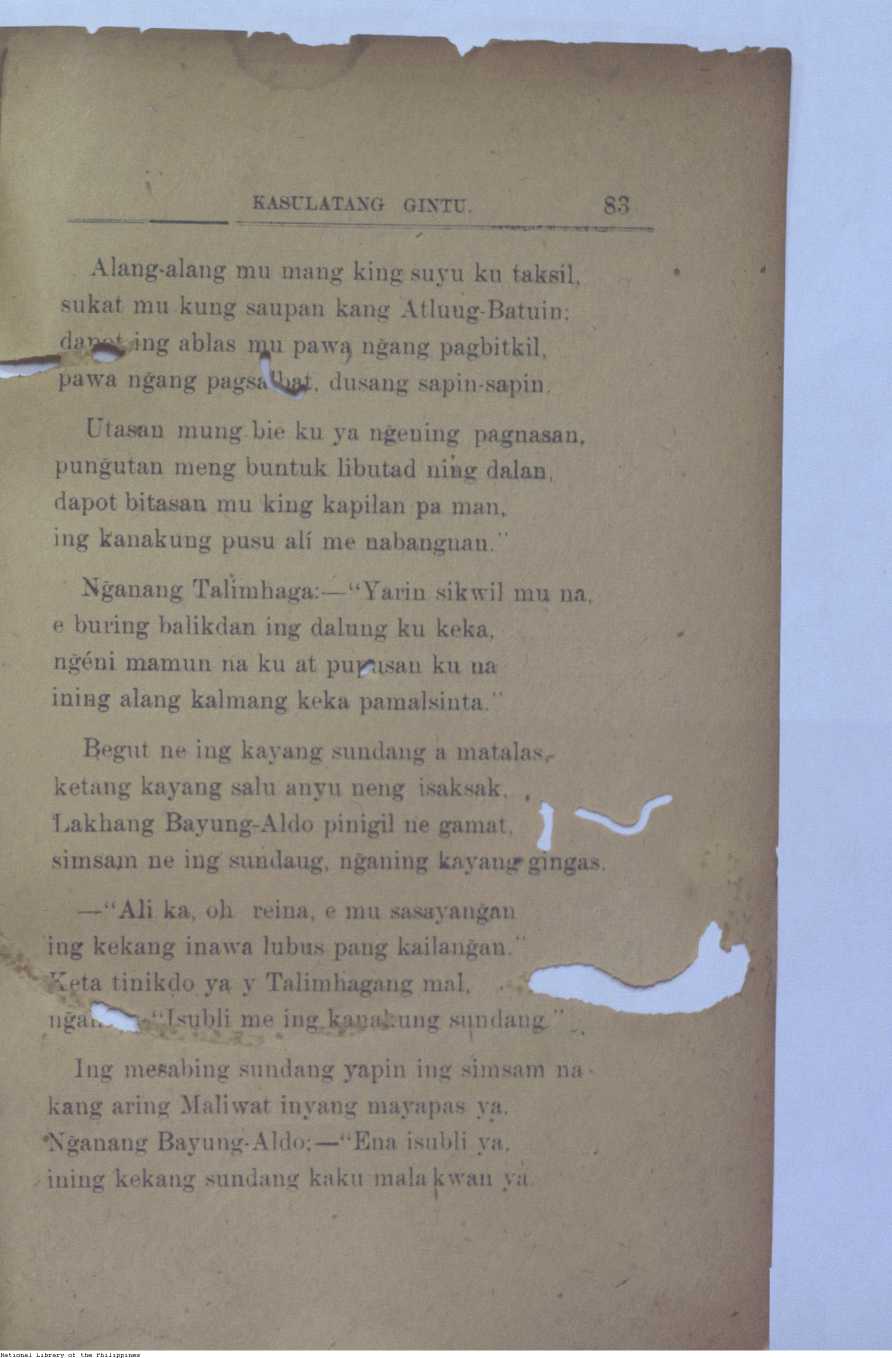 KASULATANG GINTU. 83
Alang-alang mu mang king suyu ku taksil,
sukat mu kung saupan kang Atluug-Batuin;
dapot ing ablas mu pawa ng̃ang pagbitkil,
pawa ng̃ang dusang sapin-sapin.
Utasan mung bie ku ya ng̃ening pagnasan,
pung̃utan meng buntuk libutad ning dalan,
dapot bitasan mu king kapilan pa man,
ing kanakung pusu alí me nabangnan."
Ng̃anang Talimhaga:—"Yarin sikwil mu na,
e buring balikdan ing dalung ku keka,
ng̃éni mamun na ku at ku na
ining alang kalmang keka pamalsinta."
Begut ne ing kayang sundang a matalas,
ketang kayang salu anyu neng isaksak,
Lakhang Bayung-Aldo pinigil ne gamat,
simsam ne ing sundaug, ng̃aning kayang gingas.
—"Ali ka, oh reina, e mu sasayang̃an
ing kekang inawa lubus pang kailang̃an."
Keta tinikdo ya y Talimhagang mal,
"Isubli me ing kanakung sundang."
Ing mesabing sundang yapin ing simsam na
kang aring Maliwat inyang mayapas ya.
Ng̃anang Bayung-Aldo;—"Ena isubli ya,
ining kekang sundang kaku malakwan ya.
National Library of the Philippines